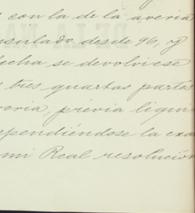 con la de la averia
sulado desde 96, y
echa se devolviese
tres quartas partes
veria, previa liqui
ependiéndose la exa
mi Real resolucion